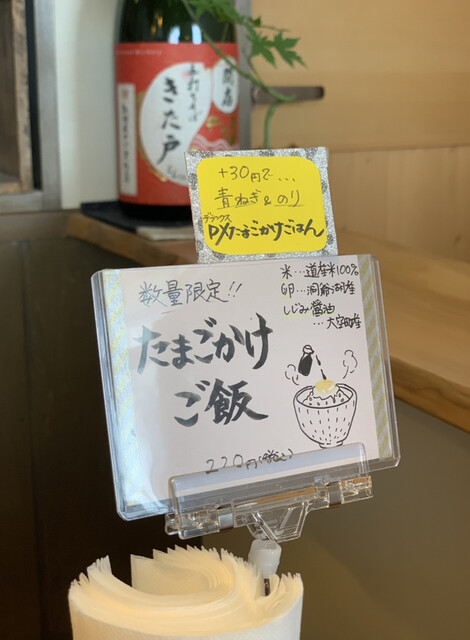 開店
手打ちそば
きた戸
+30円で...
青ねぎ&のり
デラックス
DXたまごかけごはん
数量限定!!
たまごかけ
ご飯
220円(税込)
米...道産米100%
卵...洞爺湖産
しじみ醤油
...大空町産